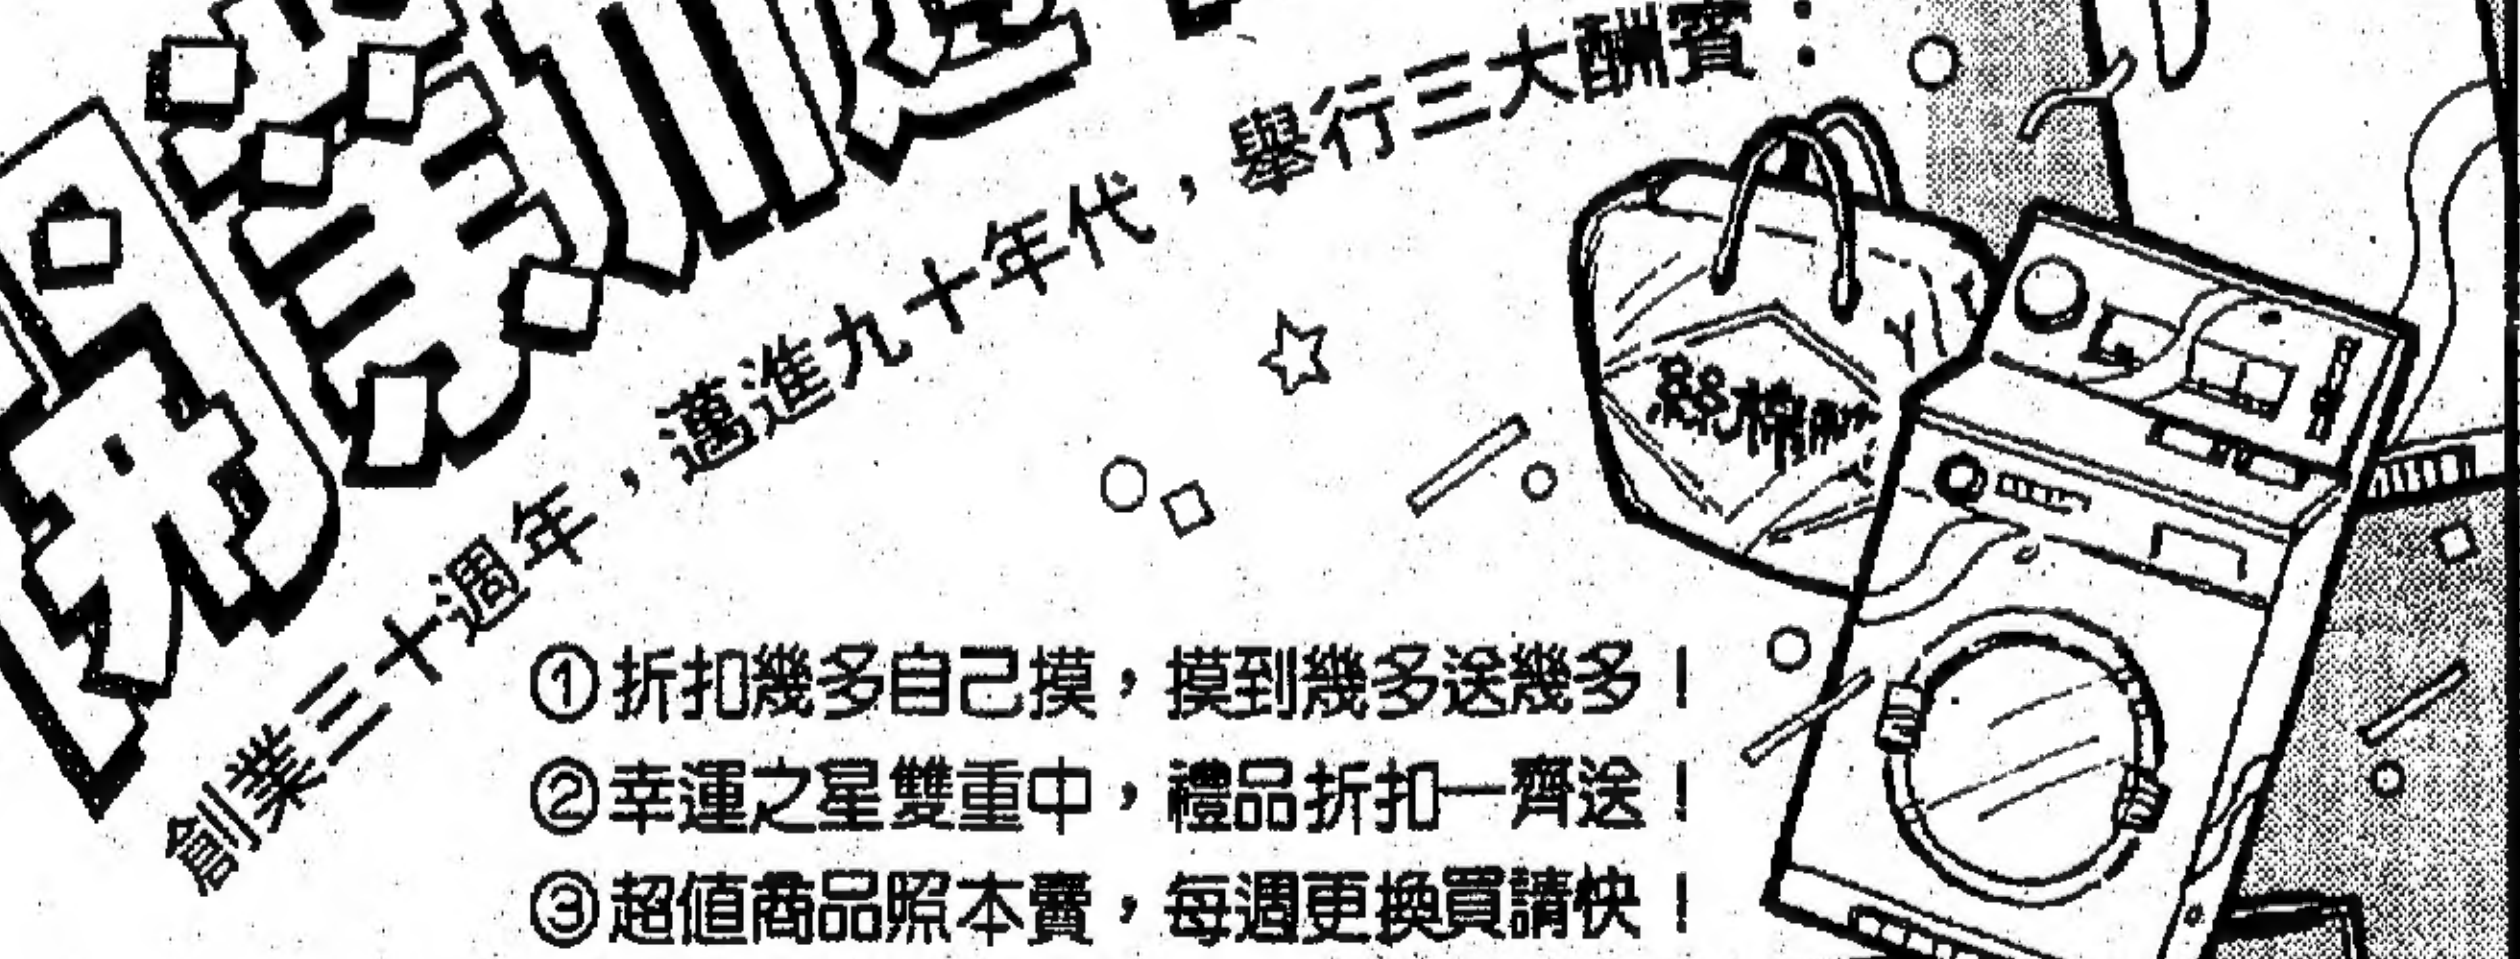 創業三十週年，邁進九十年代，舉行三大酬賓：
絲棉
①折扣幾多自己摸，摸到幾多送幾多！
②幸運之星雙重中，禮品折扣一齊送！
③超值商品照本賣，每週更換買請快！